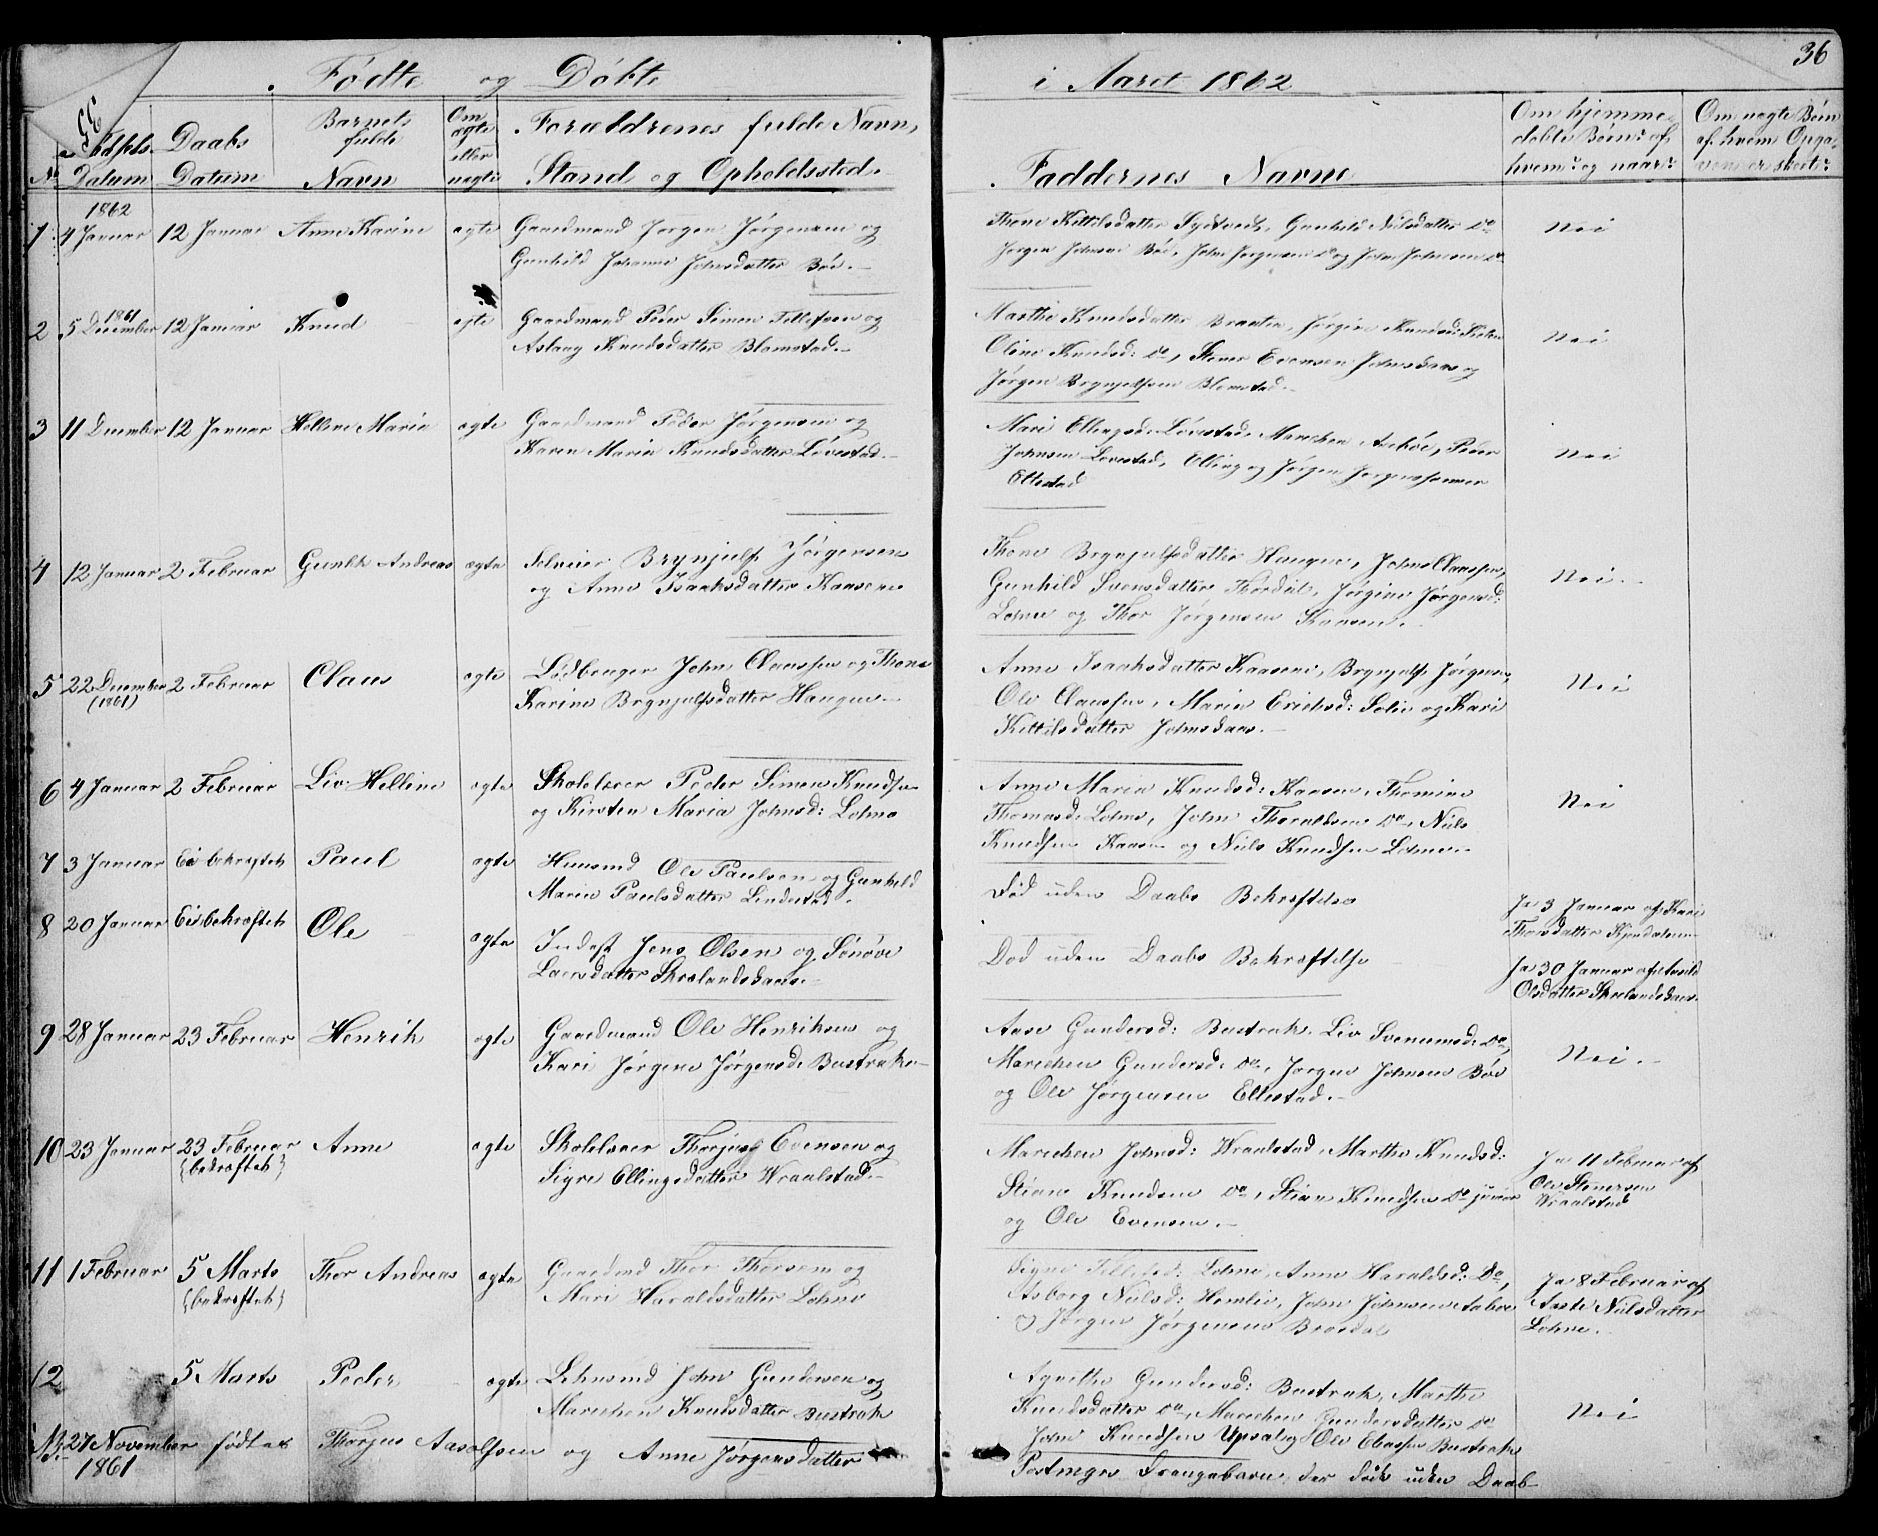 36
Fødte og Døbte i Aaret 1862
No
Fødsels
Datum
Daabs
Datum
Barnets
fulde
Navn
Om
ægte
eller
uægte
Forældrenes fulde Navn,
Stand og Opholdssted.
Faddernes Navne
Om hjemme-
døbte Børn: af
hvem? og naar?
Om uægte Børn
af hvem Opga-
ven er skeet?
1862
1 4 Januar 12 Januar Anne Karine ægte
Gaardmand Jørgen Jørgensen og
Gunhild Johanne Johnsdatter Bøe.
Thone Kittilsdatter Gunhild Nilsdatter Do
Jørgen Johnsen Bøe, John Jørgensen Do og John Johnsen Do
Nei
1861
2 5 December 12 Januar Knud ægte
Gaardmand Peder Simon Tellefsen og
Aslaug Knudsdatter Blomstad.
Marthe Knudsdatter Braaten, Jørgine Knudsd:
Oline Knudsd: Do, Stener Evensen Johnskaas og
Jørgen Brynjulfsen Blomstad.
Nei
3 11 December 12 Januar Helline Maria ægte
Gaardmand Peder Jørgensen og
Karen Maria Knudsdatter Løvestad.
Mari Ellingsd: Løvestad, Marichen Aabøe, Peder
Johnsen Løvestad, Elling og Jørgen Jørgenssønner
Ellestad
Nei
4 12 Januar 2 Februar Gunlek Andreas ægte
Selveier Brynjulf Jørgensen
og Anne Isaaksdatter Kaasene
Thone Brynjulfsdatter Haugen, John Claussen,
Gunhild Svensdatter Thordal, Jørgine Jørgensd:
Lohne og Thor Jørgensen Kaasene.
Nei
5 22 December 2 Februar Claus ægte
(1861)
Lødbruger John Claussen og Thone
Karine Brynjulfsdatter Haugen
Anne Isaaksdatter Kaasene, Brynjulf Jørgensen,
Ole Claussen, Maria Eriksd: Solie og Kari
Kittilsdatter Johnskaas.
Nei
6 4 Januar 2 Februar Liv Helline ægte
Skolelærer Peder Simon Knudsen
og Kirsten Maria Johnsd: Lohne
Anne Maria Knudsd: Kaasen, Thomine
Thomasd: Lohne, John Tharaldsen Do, Niels
Knudsen Kaasen og Niels Knudsen Lohne.
Nei
7 3 Januar Ei bekræftet Paul ægte
Huusmd Ole Paulsen og Gunhild
Maria Paulsdatter Lindestad.
Død uden Daabs Bekræftelse
Ja 3 Januar af Kari
Thorsdatter Kjendalen
8 20 Januar Ei bekræftet Ole ægte
Inderst Jens Olsen og Sønøve
Laersdatter Skrælandskaas.
Død uden Daabs Bekræftelse
Ja 30 Januar af
Olsdatter Skrælandskaas
9 28 Januar 23 Februar Henrik ægte
Gaardmand Ole Henriksen og
Kari Jørgine Jørgensd: Bustrak
Aase Gundersd: Bustrak, Liv Svenumsd: Do,
Marichen Gundersd: Do, Jørgen Johnsen Bøe
og Ole Jørgensen Ellestad.
Nei.
10 23 Januar 23 Februar Anne ægte
(bekræftet)
Skolelærer Thorjus Evensen og
Sigre Ellingsdatter Wraalstad.
Marichen Johnsd: Wraalstad, Marthe Knudsd:
Stian Knudsen Do, Stian Knudsen Do junior
og Ole Evensen.
Ja 11 Februar af
Ole Stenersen
Wraalstad
11 1 Februar 5 Marts Thor Andreas ægte
(bekræftet)
Gaardmd Thor Thorsen og
Mari Haraldsdatter Lohne
Signe Tellefsd: Lohne, Anne Haraldsd: Do,
Asborg Nielsd: Homlie, John Johnsen Aabøe
og Jørgen Jørgensen
Ja 8 Februar af
Aaste Nielsdatter
Lohne.
12 5 Marts Peder ægte
Lehnsmd John Gundersen og
Marichen Knudsdatter Bustrak
Agnethe Gundersd: Bustrak, Marthe
Knudsdatter Do, Marichen Gundersdatter Do
John Knudsen Upsal og Ole Eliassen Bustrak
Nei
NB. 27 November fødtes Thorjus Aasolfsen og Anne Jørgensdatter
1861
Drengebarn, der døde uden Daab